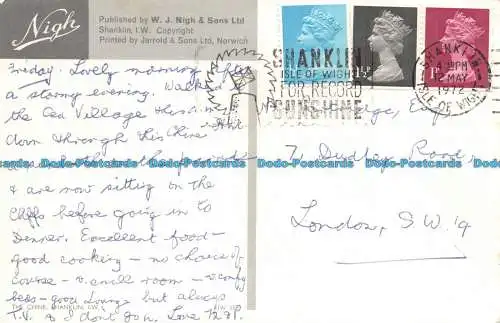 Nigh
Published by W. J. Nigh & Sons Ltd
Shanklin, I.W. Copyright
Printed by Jarrold & Sons Ltd, Norwich
SHANKLIN
ISLE OF WIGHT
FOR RECORD
SUNSHINE
SHANKLIN
4 PM
12 MAY
1972
ISLE OF WIGHT
Friday. Lovely morning after
a stormy evening. Walked
the Old Village this
down through this Chine
& are now sitting on the
Cliffs before going in to
Dinner. Excellent food -
good cooking - no choice of
course - v. small room - v. comfy
beds - good Lounge but always
T.V. so I don't go in. Love
Esq
7 Dudley Road,
London, S.W.19
THE CHINE, SHANKLIN, I.W.
Dodo-Postcards.com Dodo-Postcards.com Dodo-Postcards.com Dodo-Postcards.com